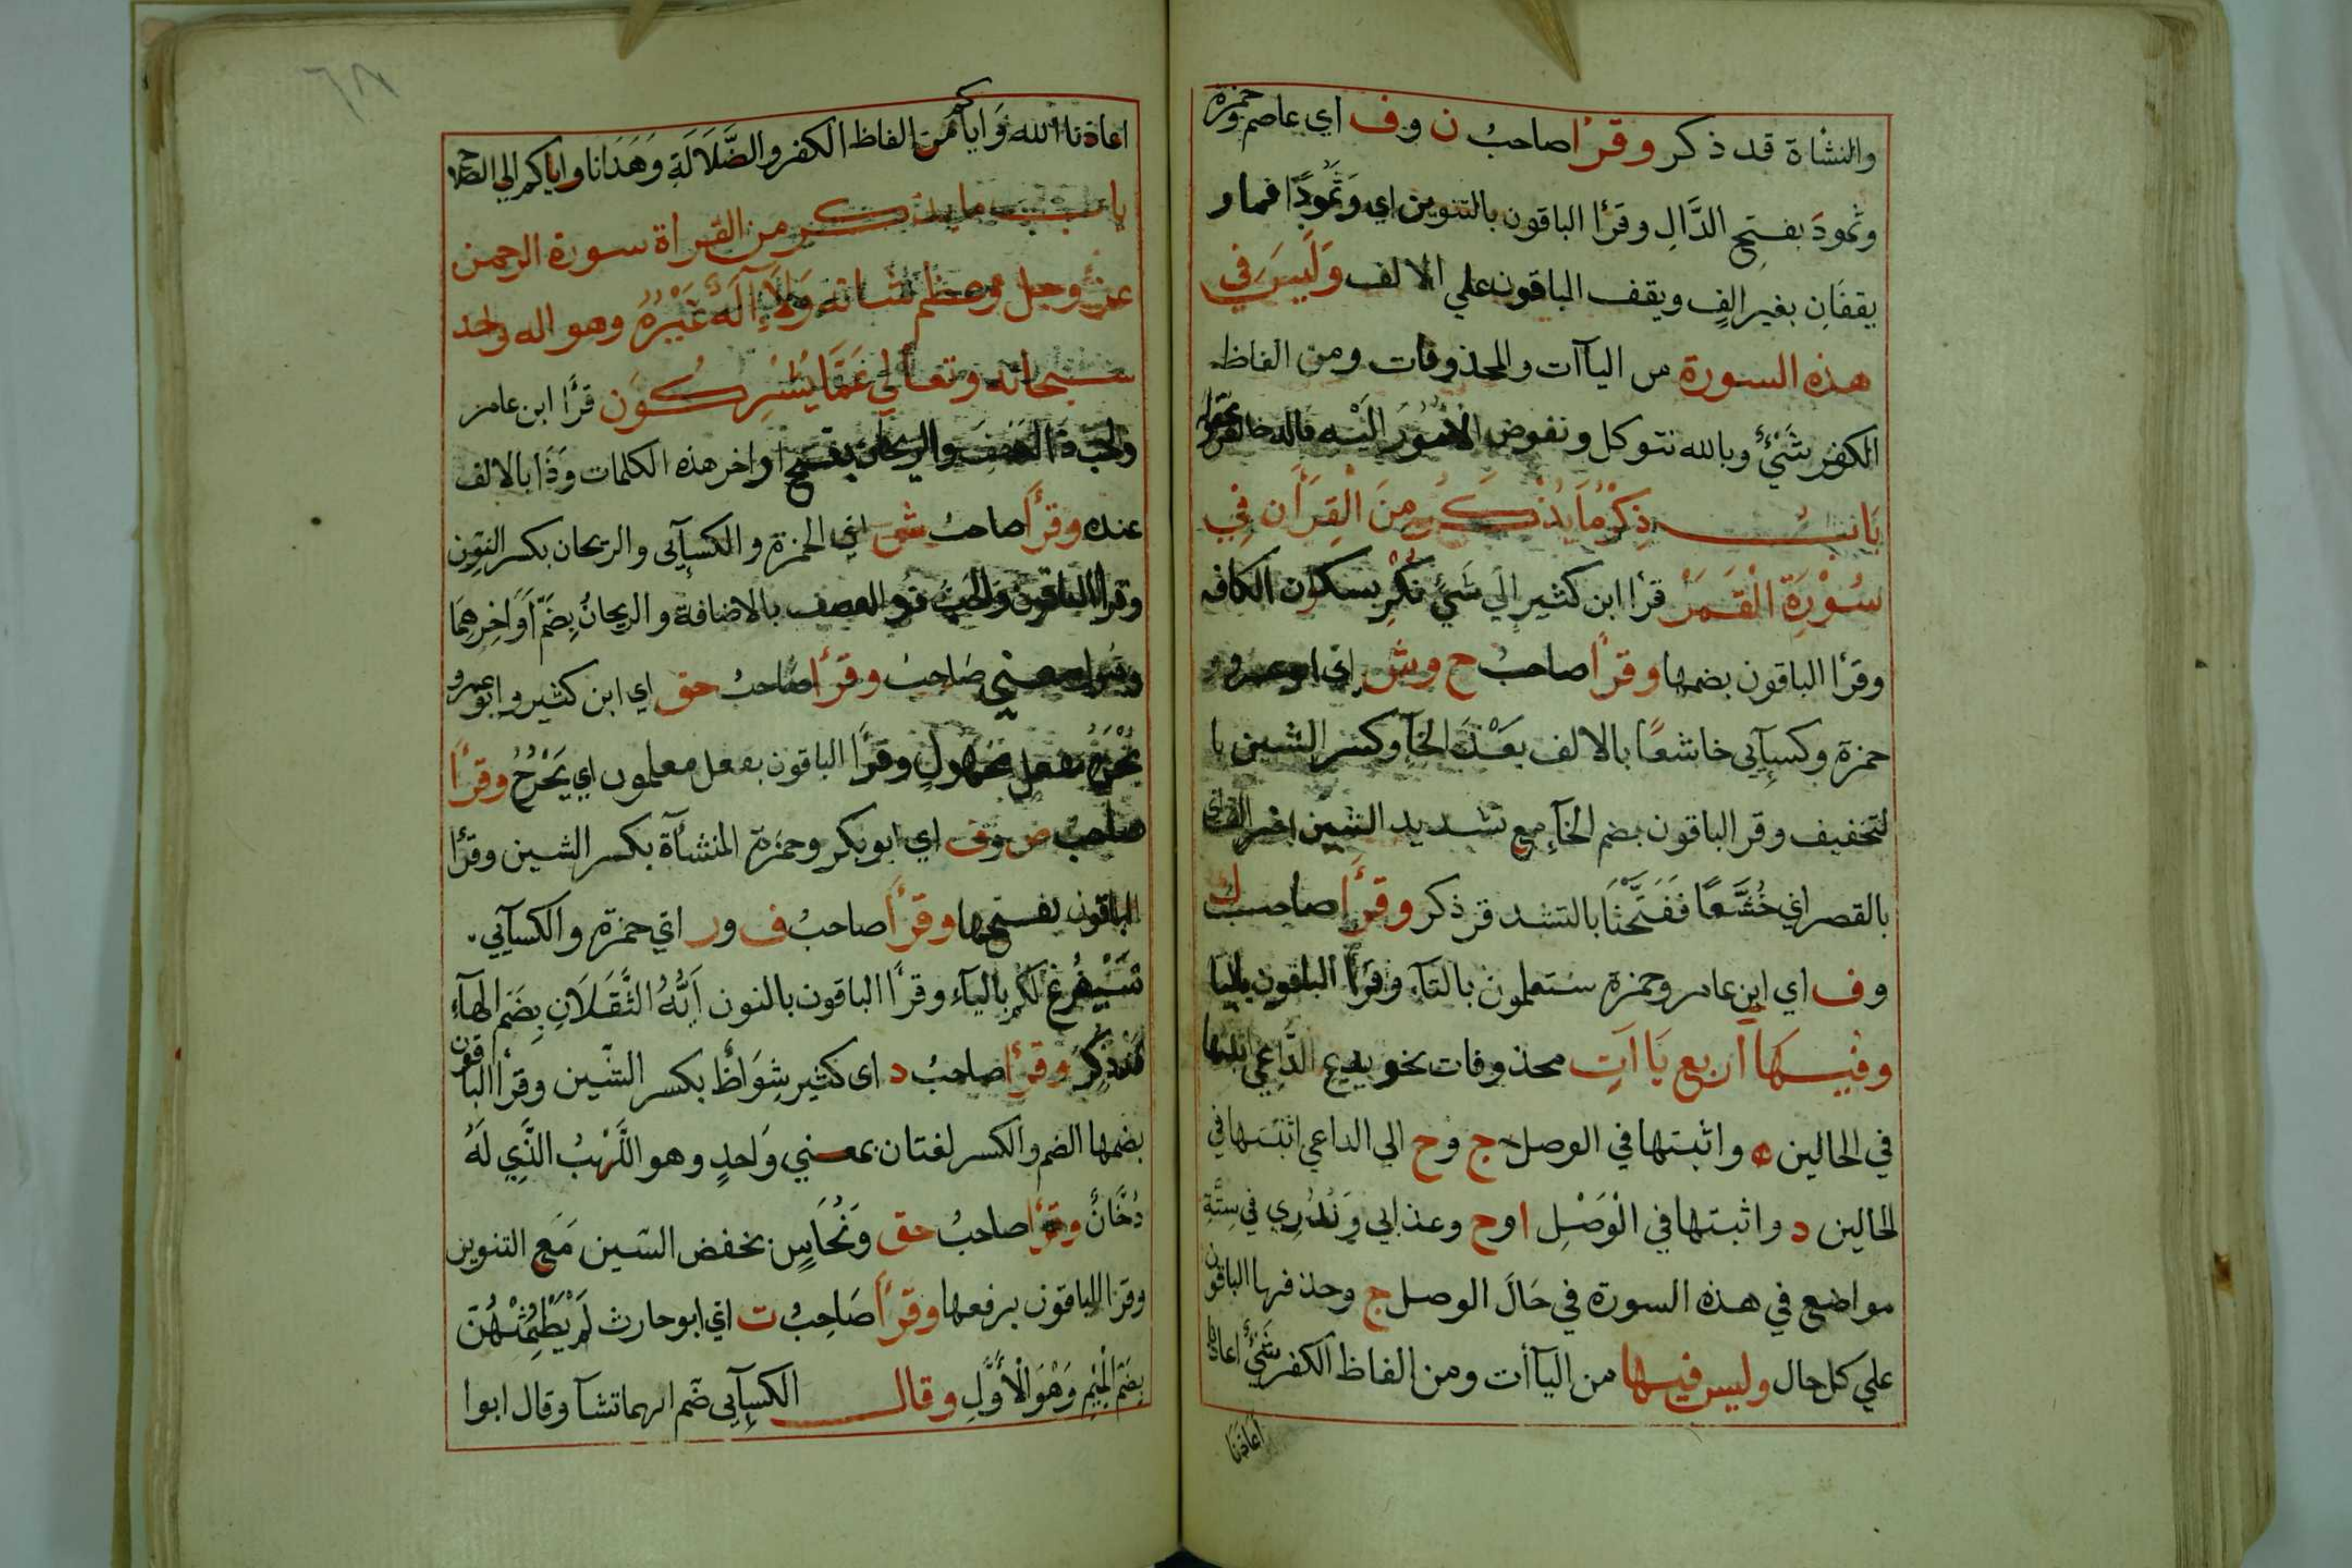 والنشاة قد ذكر وقرأ صاحب ن وف اي عاصم وحمزة
وثمود بفتح الدال وقرأ الباقون بالتنوين اي وثمودا فما و
يقفان بغير الف ويقف الباقون علي الالف وليس في
هذه السورة من اليآات والمحذوفات ومن الفاظ
الكفر شيئ وبالله نتوكل ونفوض الامور اليه
باب ذكر ما يذكر من القرأن في
سورة القمر قرأ ابن كثير الي شئ نكر بسكون الكاف
وقرأ الباقون بضمها وقرأ صاحب ح وش اي ابو عمرو
حمزة وكسآئي خاشعا بالالف بعد الخآ وكسر الشين با
لتخفيف وقر الباقون بضم الخآء مع تشديد الشين
بالقصر اي خشعا ففتحنا بالتشد قد ذكر وقرأ صاحب ك
وف اي ابن عامر وحمزة ستعلمون بالتآء وقرأ الباقون باليا
وفيها اربع ياات محذوفات نحو يدع الداعي اثبتها
في الحالين ه واثبتها في الوصل ج وح الي الداعي اثبتها في
الحالين د واثبتها في الوصل ا وح وعذابي ونذري في ستة
مواضع في هذه السورة في حال الوصل ج وحذفها الباقون
علي كل حال وليس فيها من اليآأت ومن الفاظ الكفر شيئ اعاذنا
اعاذنا
٦٨
اعاذنا الله واياكم من الفاظ الكفر والضلالة وهدانا واياكم الي الصلاح
باب ما يذكر من القراة سورة الرحمن
عز وجل وعظم شانه ولا اله غيره وهو اله واحد
سبحانه وتعالي عما يشركون قرأ ابن عامر
والحب ذا العصف والريحان بفتح اواخر هذه الكلمات وذا بالالف
عنده وقرأ صاحب ش اي الحمزة والكسآئي والريحان بكسر النون
وقرا الباقون والحب ذو العصف بالاضافة والريحان بضم اواخرهما
صاحب وقرأ صاحب حق اي ابن كثير وابو عمرو
يخرج بفعل مجهول وقرأ الباقون بفعل معلمون اي يخرج وقرأ
صاحب ص وف اي ابو بكر وحمزة المنشأة بكسر الشين وقرأ
الباقون بفتحها وقرأ صاحب ف ور اي حمزة والكسآئي
سيفرغ لكم باليآء وقرأ الباقون بالنون ايه الثقلان بضم الهآء
قد ذكر وقرأ صاحب د اى كثير شواظ بكسر الشين وقرأ الباقون
بضمها الضم والكسر لغتان بمعني واحد وهو اللهب الذي له
دخان وقرأ صاحب حق ونحاس بخفض السين مع التنوين
وقرا الباقون برفعها وقرأ صاحب ت اي ابو حارث لم يطمثهن
بضم الميم وهو الاول وقال الكسآئي ضم ايهما تشآ وقال ابوا